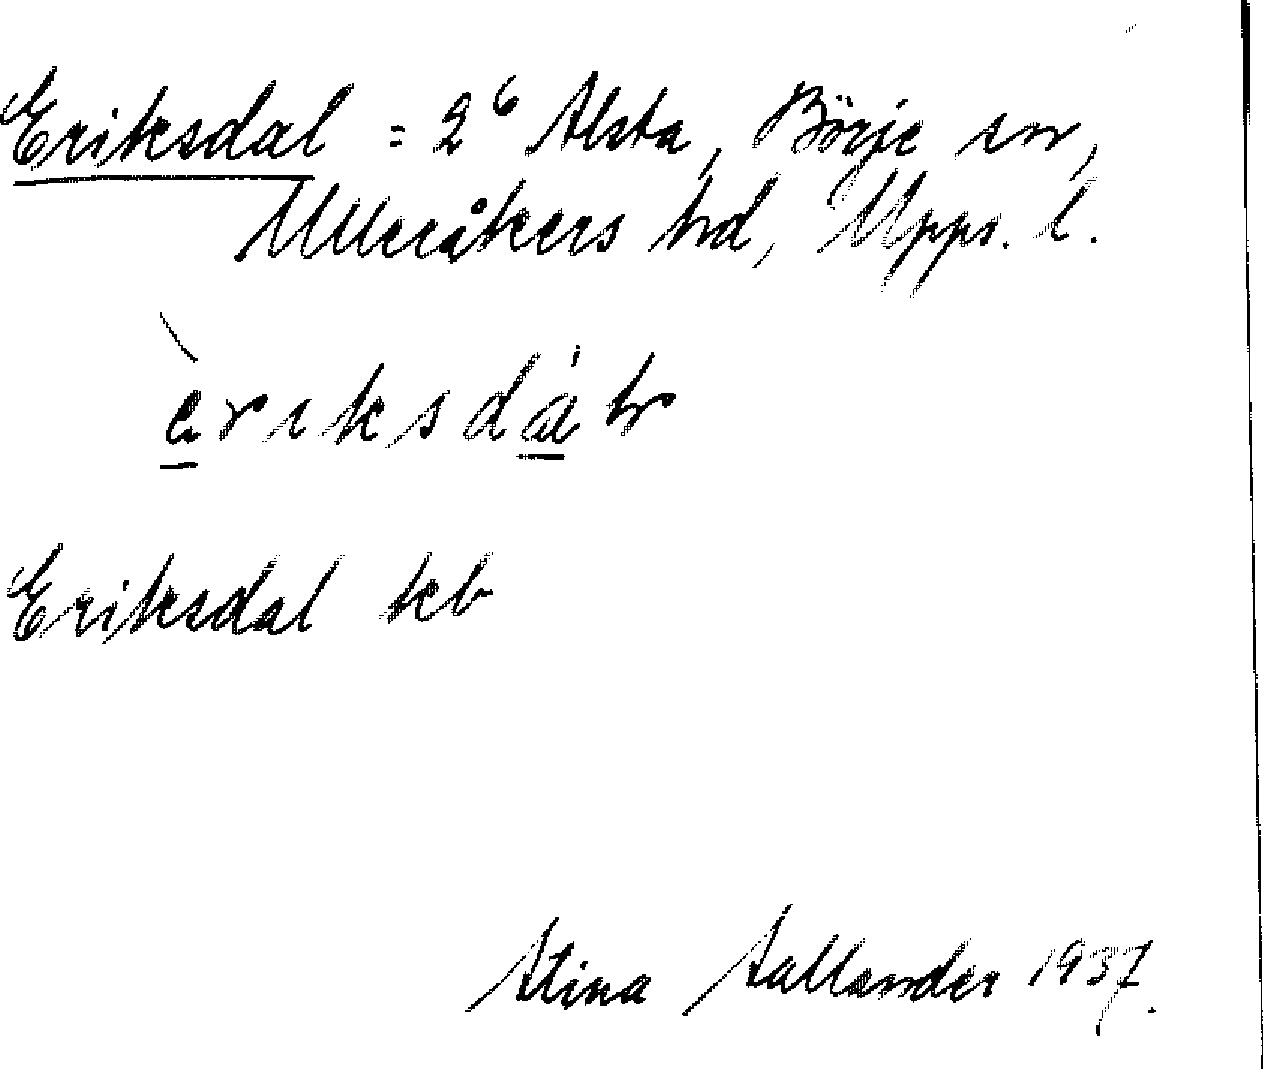 Eriksdal = 2⁶ Alsta, Börje sn,
Ulleråkers hd, Upps. l.
èriksdà
Eriksdal kb
Stina Sallander 1937.